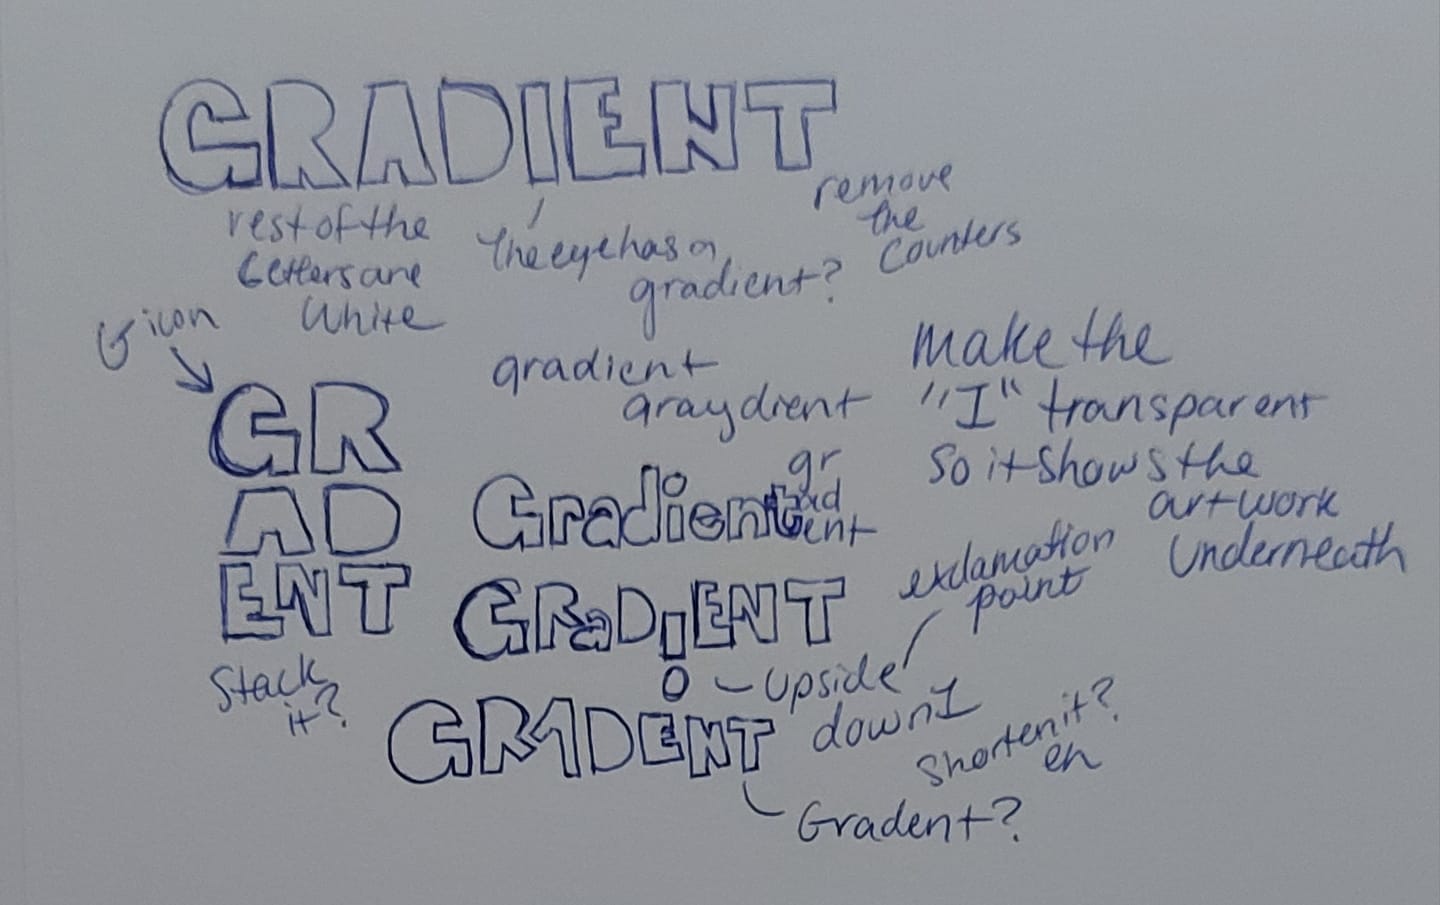 GRADIENT
rest of the
Letters are
White
The eye has a
gradient?
remove
the
Counters
G icon
GR
AD
ENT
Stack
it?
gradient
graydient
make the
"I" transparent
So it shows the
artwork
Underneath
Gradient
gr
ad
ent
GRaDiENT
exclamation
point
upside
down I
GRADENT
Shorten it?
en
Gradent?